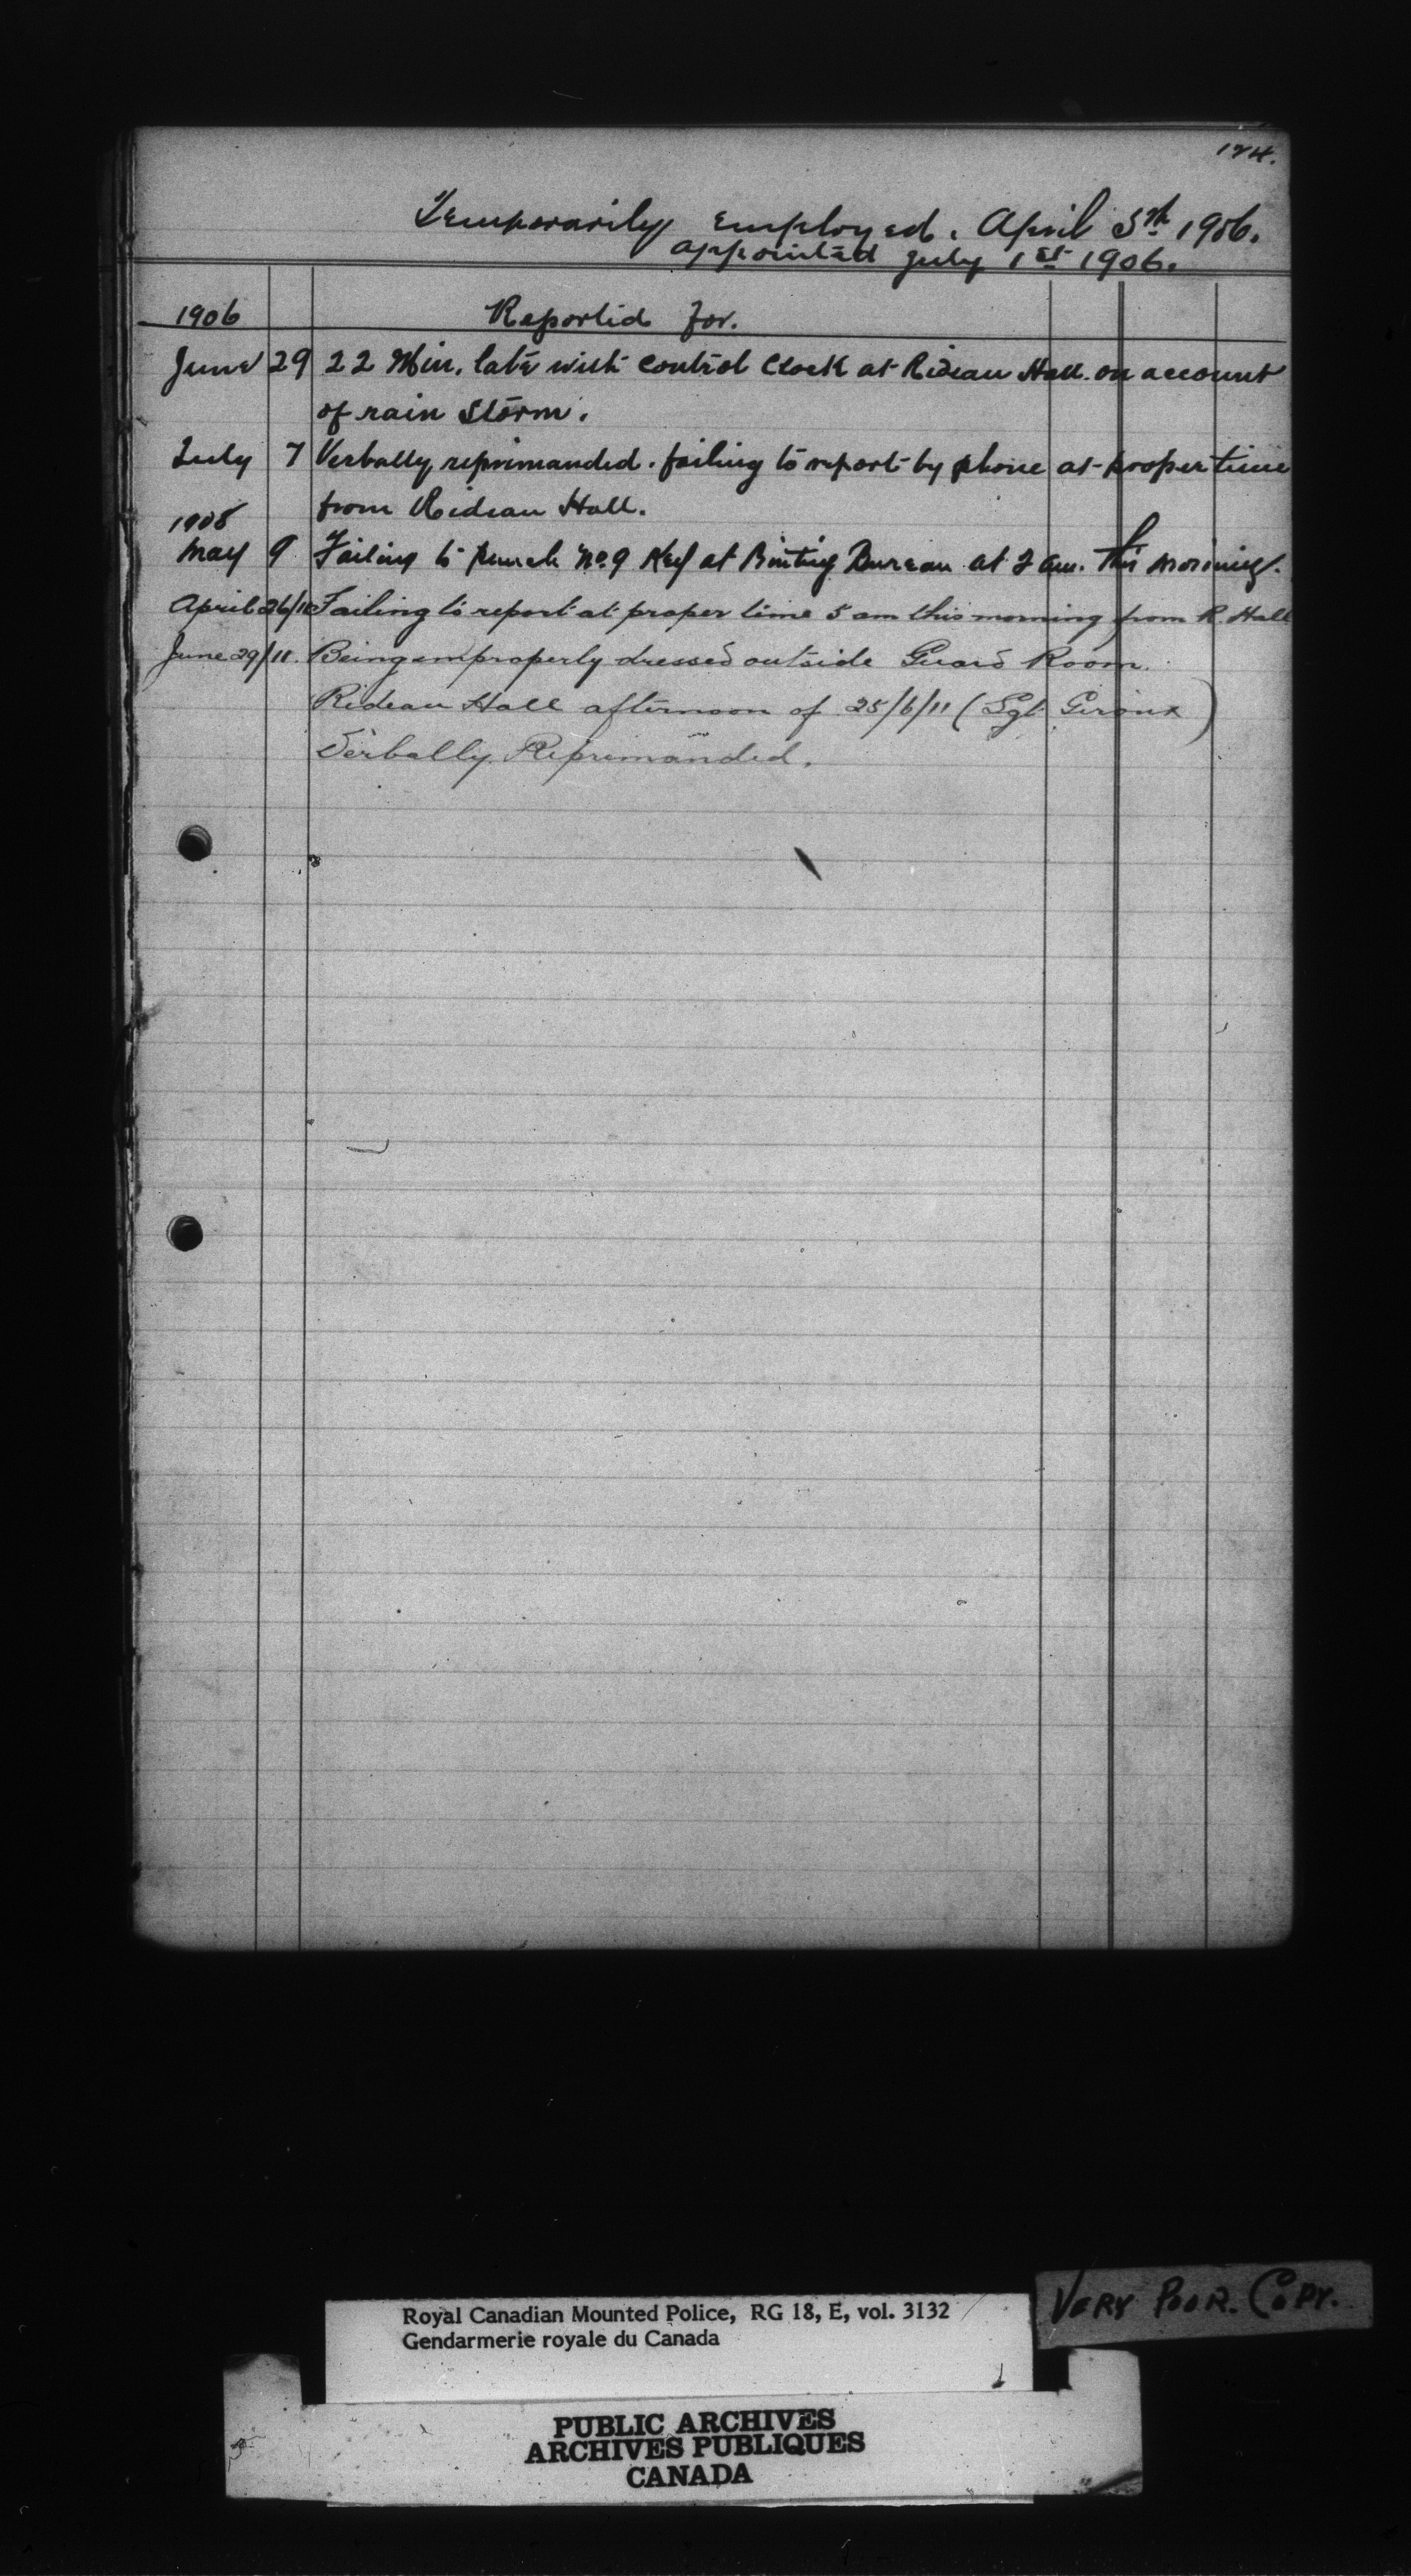 124.
Temporarily employed. April 5th 1906.
appointed July 1st 1906.
1906 Reported for.
June 29 22 Min. late with Control Clock at Rideau Hall. on account
of rain storm.
July 7 Verbally reprimanded. failing to report by phone at proper time
from Rideau Hall.
1908
May 9 Failing to punch No. 9 Key at Printing Bureau at 2 am. this morning.
April 26/11 Failing to report at proper time 5 am this morning from R. Hall
June 29/11. Being improperly dressed outside Guard Room.
Rideau Hall afternoon of 25/6/11 (Sgt Giroux)
Verbally Reprimanded.
VERY POOR. COPY.
Royal Canadian Mounted Police, RG 18, E, vol. 3132
Gendarmerie royale du Canada
PUBLIC ARCHIVES
ARCHIVES PUBLIQUES
CANADA